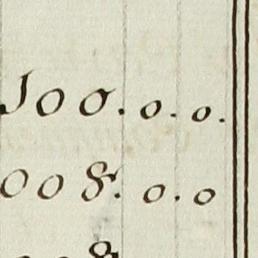 100. 0. 0.
008. 0. 0